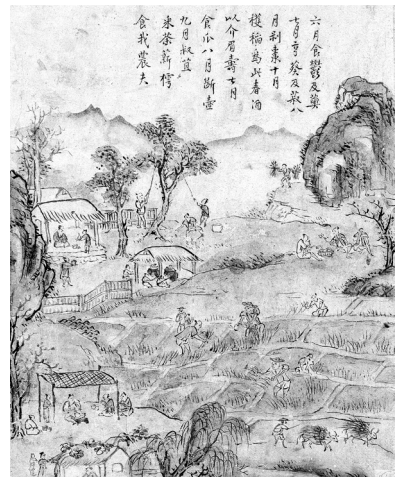 六月食鬱及薁
七月亨葵及菽八
月剝棗十月
穫稻為此春酒
以介眉壽七月
食瓜八月斷壺
九月叔苴
采荼薪樗
食我農夫